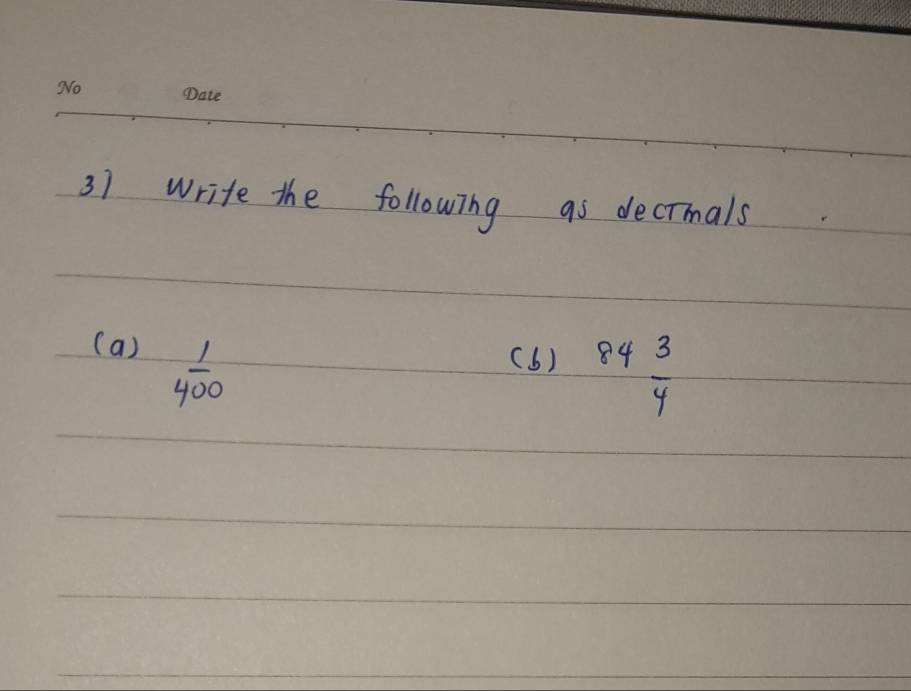 No Date
3) Write the following as decimals .
(a) 1/400 (b) 84 3/4